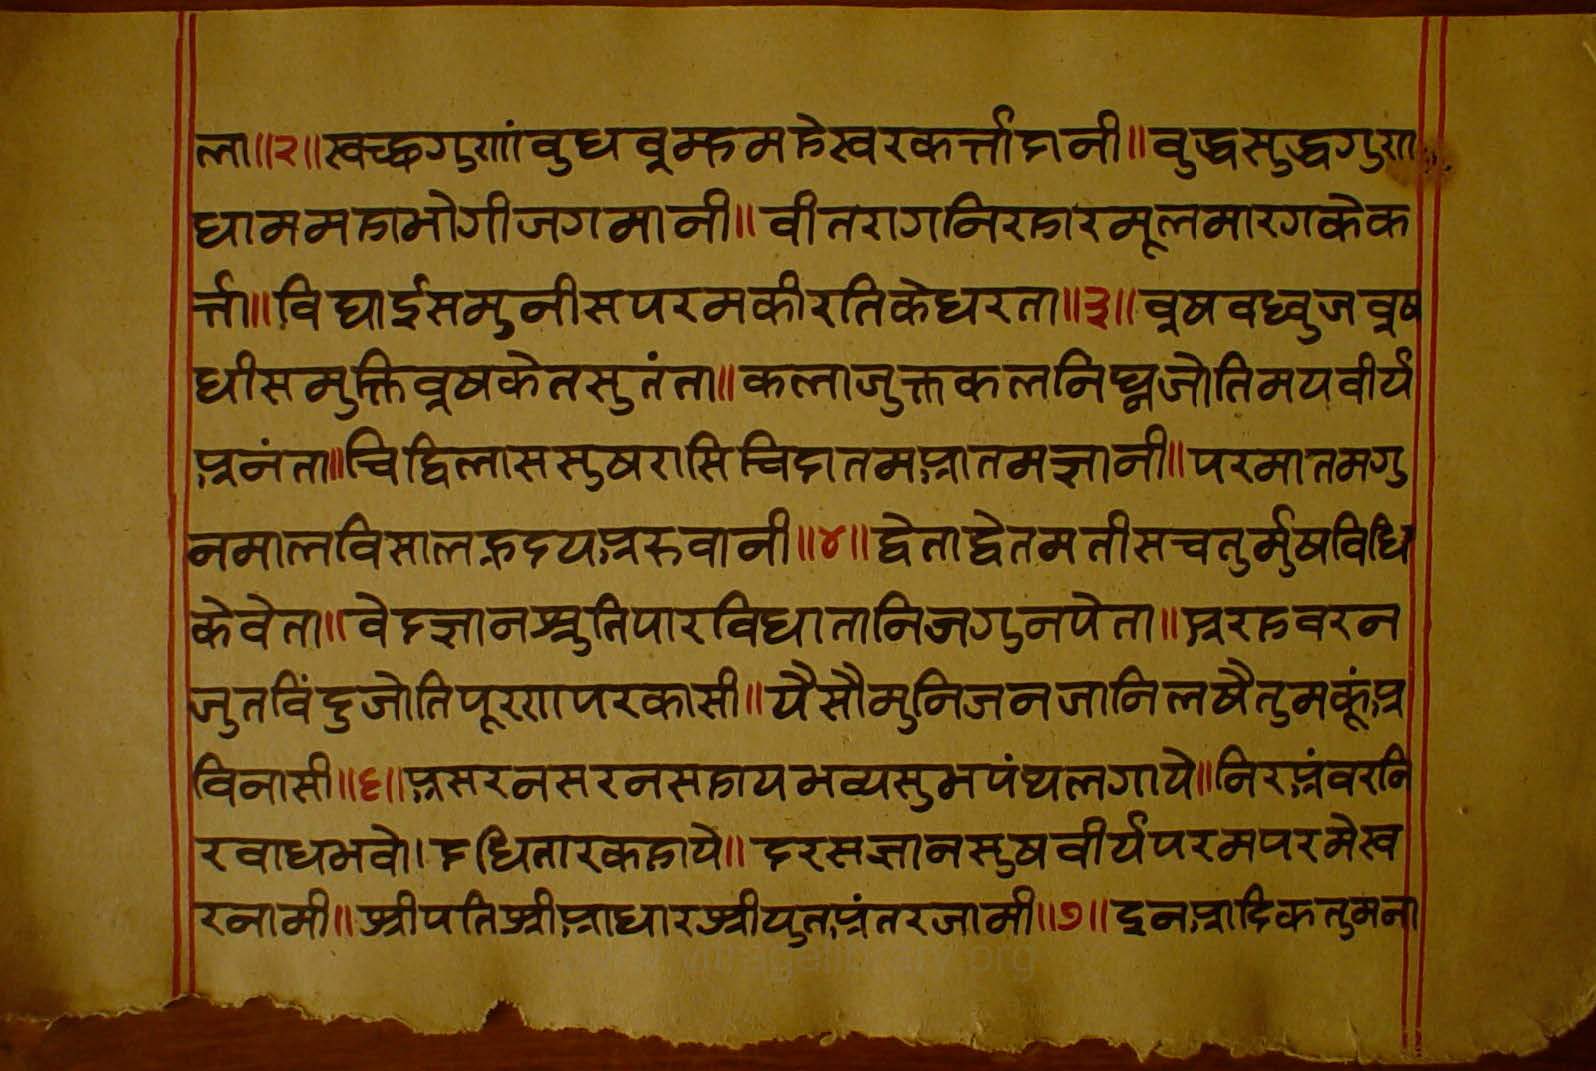 ला॥२॥स्वच्छगुणांवुधवृम्हमहेस्वरकर्त्तादानी॥वुद्धसुद्धगुण
धाममहाभोगीजगमानी॥वीतरागनिराहारमूलमारगकेक
र्त्ता॥विधाईसमुनीसपरमकीरतिकेधरता॥३॥वृषवध्वुजवृष
धीसमुक्तिवृषकेतसुतंता॥कलाजुक्तकलनिघ्नजोतिमयवीर्य
अनंता॥चिद्विलाससुषरासिचिदातमआतमज्ञानी॥परमातमगु
नमालविसालहृदयअरुवानी॥४॥द्वेताद्वेतमतीसचतुर्मुषविधि
केवेता॥वेदज्ञानश्रुतिपारविधातानिजगुनपेता॥अरहवरन
जुतविंदुजोतिपूरणपरकासी॥यैसौमुनिजनजानिलषैतुमकूंअ
विनासी॥६॥असरनसरनसहायभव्यसुभपंथलगाये॥निरअंवरनि
रवाधभवो।दधितारकहाये॥दरसज्ञानसुषवीर्यपरमपरमेस्व
रनामी॥श्रीपतिश्रीआधारश्रीयुतअंतरजामी॥७॥इनआदिकतुमना
www.vitragelibrary.org